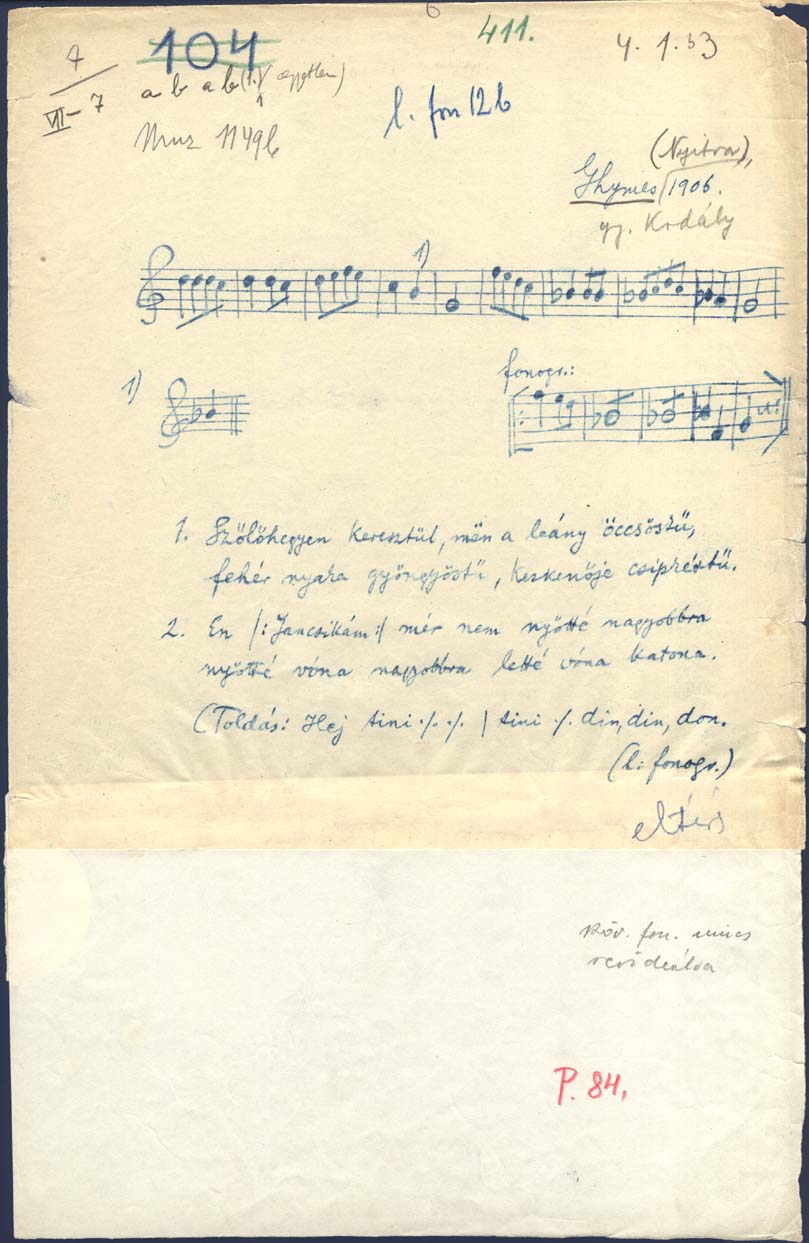 6
104
411.
4. 1. 53
7
VII - 7
a b a b (1.)
Muz 1149b
l. fon 12b
(Nyitra),
Ghymes 1906.
gy. Kodály
1)
1)
fonogr.:
1. Szőlőhegyen keresztül, mën a leány öccsöstű,
fehér nyaka gyöngyöstű, keskenője csipkéstű.
2. Én |: Jancsikám :| mér nem nyötté nagyobbra
nyötté vóna nagyobbra letté vóna katona.
(Toldás: Hej tini ·/. ·/. | tini ·/. din, din, don.
(l: fonogr.)
eltérő
köv. fon. nincs
revideálva
P. 84.